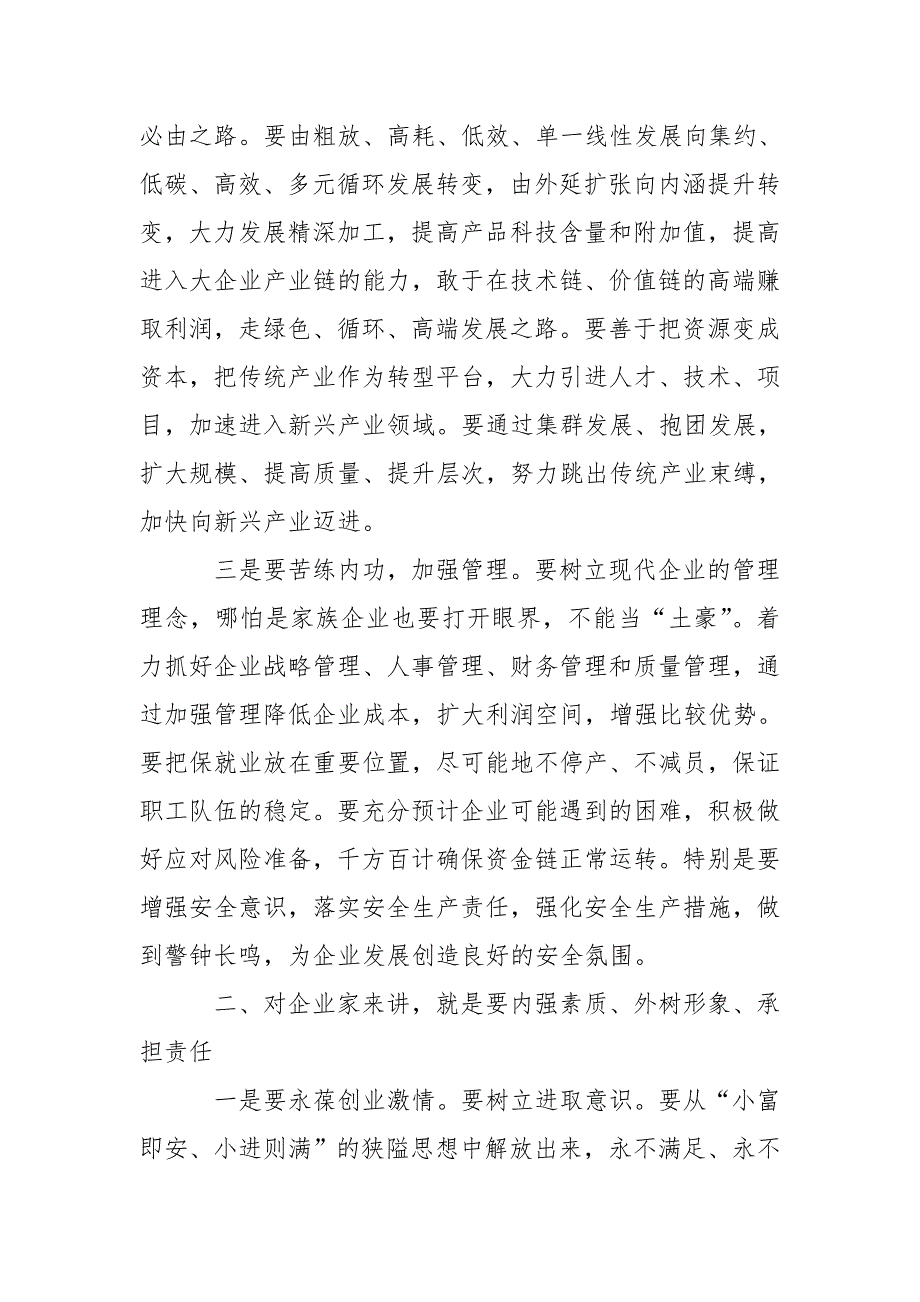 必由之路。要由粗放、高耗、低效、单一线性发展向集约、
低碳、高效、多元循环发展转变，由外延扩张向内涵提升转
变，大力发展精深加工，提高产品科技含量和附加值，提高
进入大企业产业链的能力，敢于在技术链、价值链的高端赚
取利润，走绿色、循环、高端发展之路。要善于把资源变成
资本，把传统产业作为转型平台，大力引进人才、技术、项
目，加速进入新兴产业领域。要通过集群发展、抱团发展，
扩大规模、提高质量、提升层次，努力跳出传统产业束缚，
加快向新兴产业迈进。
三是要苦练内功，加强管理。要树立现代企业的管理
理念，哪怕是家族企业也要打开眼界，不能当“土豪”。着
力抓好企业战略管理、人事管理、财务管理和质量管理，通
过加强管理降低企业成本，扩大利润空间，增强比较优势。
要把保就业放在重要位置，尽可能地不停产、不减员，保证
职工队伍的稳定。要充分预计企业可能遇到的困难，积极做
好应对风险准备，千方百计确保资金链正常运转。特别是要
增强安全意识，落实安全生产责任，强化安全生产措施，做
到警钟长鸣，为企业发展创造良好的安全氛围。
二、对企业家来讲，就是要内强素质、外树形象、承
担责任
一是要永葆创业激情。要树立进取意识。要从“小富
即安、小进则满”的狭隘思想中解放出来，永不满足、永不